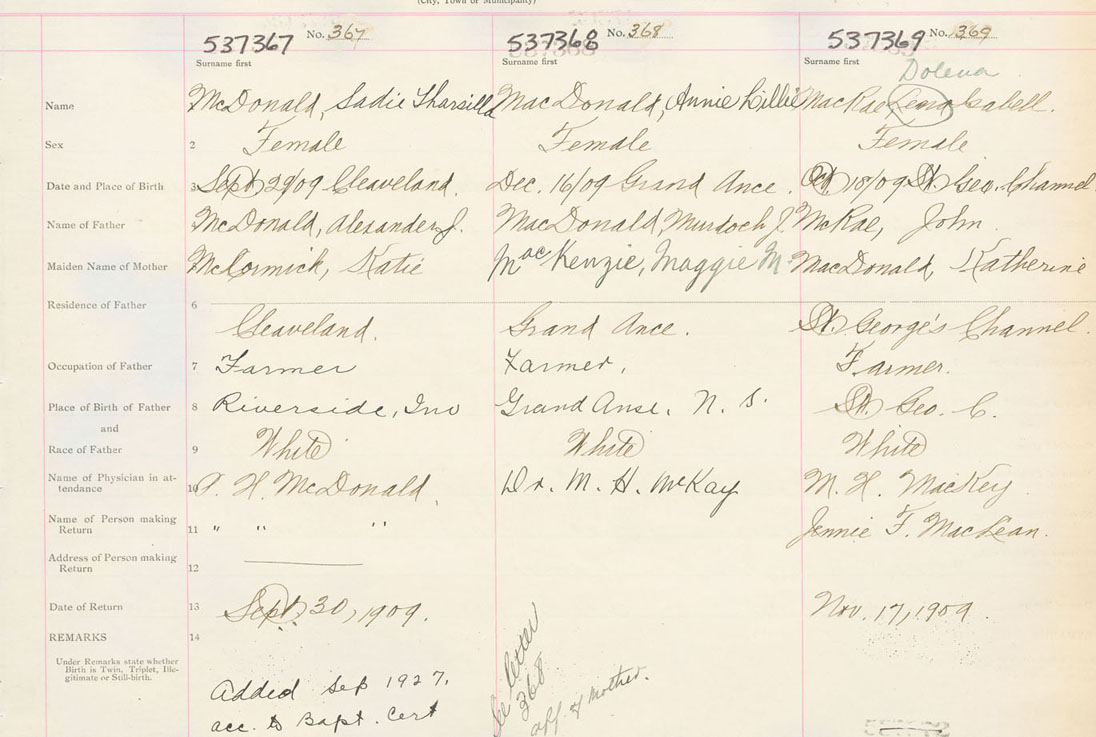 (City, Town or Municipality)
537367 No. 367 537368 No. 368 537369 No. 369
Surname first Surname first Surname first
Dolena
Name McDonald, Sadie Tharsilla MacDonald, Annie Lillie MacRae Isabell.
Sex 2 Female Female Female
Date and Place of Birth 3 Sept 29/09 Cleaveland. Dec. 16/09 Grand Ance. Oct 18/09 St. Geo. Channel
Name of Father McDonald, Alexander J. MacDonald, Murdoch J. McRae, John.
Maiden Name of Mother McCormick, Katie MacKenzie, Maggie M. MacDonald, Katherine
Residence of Father 6
Cleaveland. Grand Ance. St. George's Channel.
Occupation of Father 7 Farmer Farmer, Farmer.
Place of Birth of Father 8 Riverside, Inv Grand Anse. N. S. St. Geo. C.
and
Race of Father 9 White White White
Name of Physician in at-
tendance 10 P. H. McDonald, Dr. M. H. McKay M. H. MacKey
Name of Person making
Return 11 " " " Jennie F. MacLean.
Address of Person making
Return 12
Date of Return 13 Sept, 30, 1909. Nov. 17, 1909
REMARKS 14
Under Remarks state whether
Birth is Twin, Triplet, Ille-
gitimate or Still-birth.
Added Sep 1927,
acc. to Bapt. Cert
See letter
368
aff. of mother.